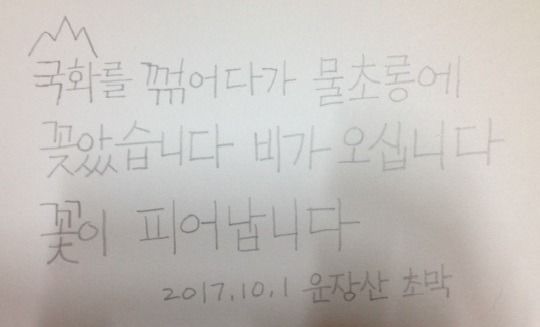 국화를 꺾어다가 물초롱에
꽂았습니다 비가 오십니다
꽃이 피어납니다
2017.10.1 운장산 초막